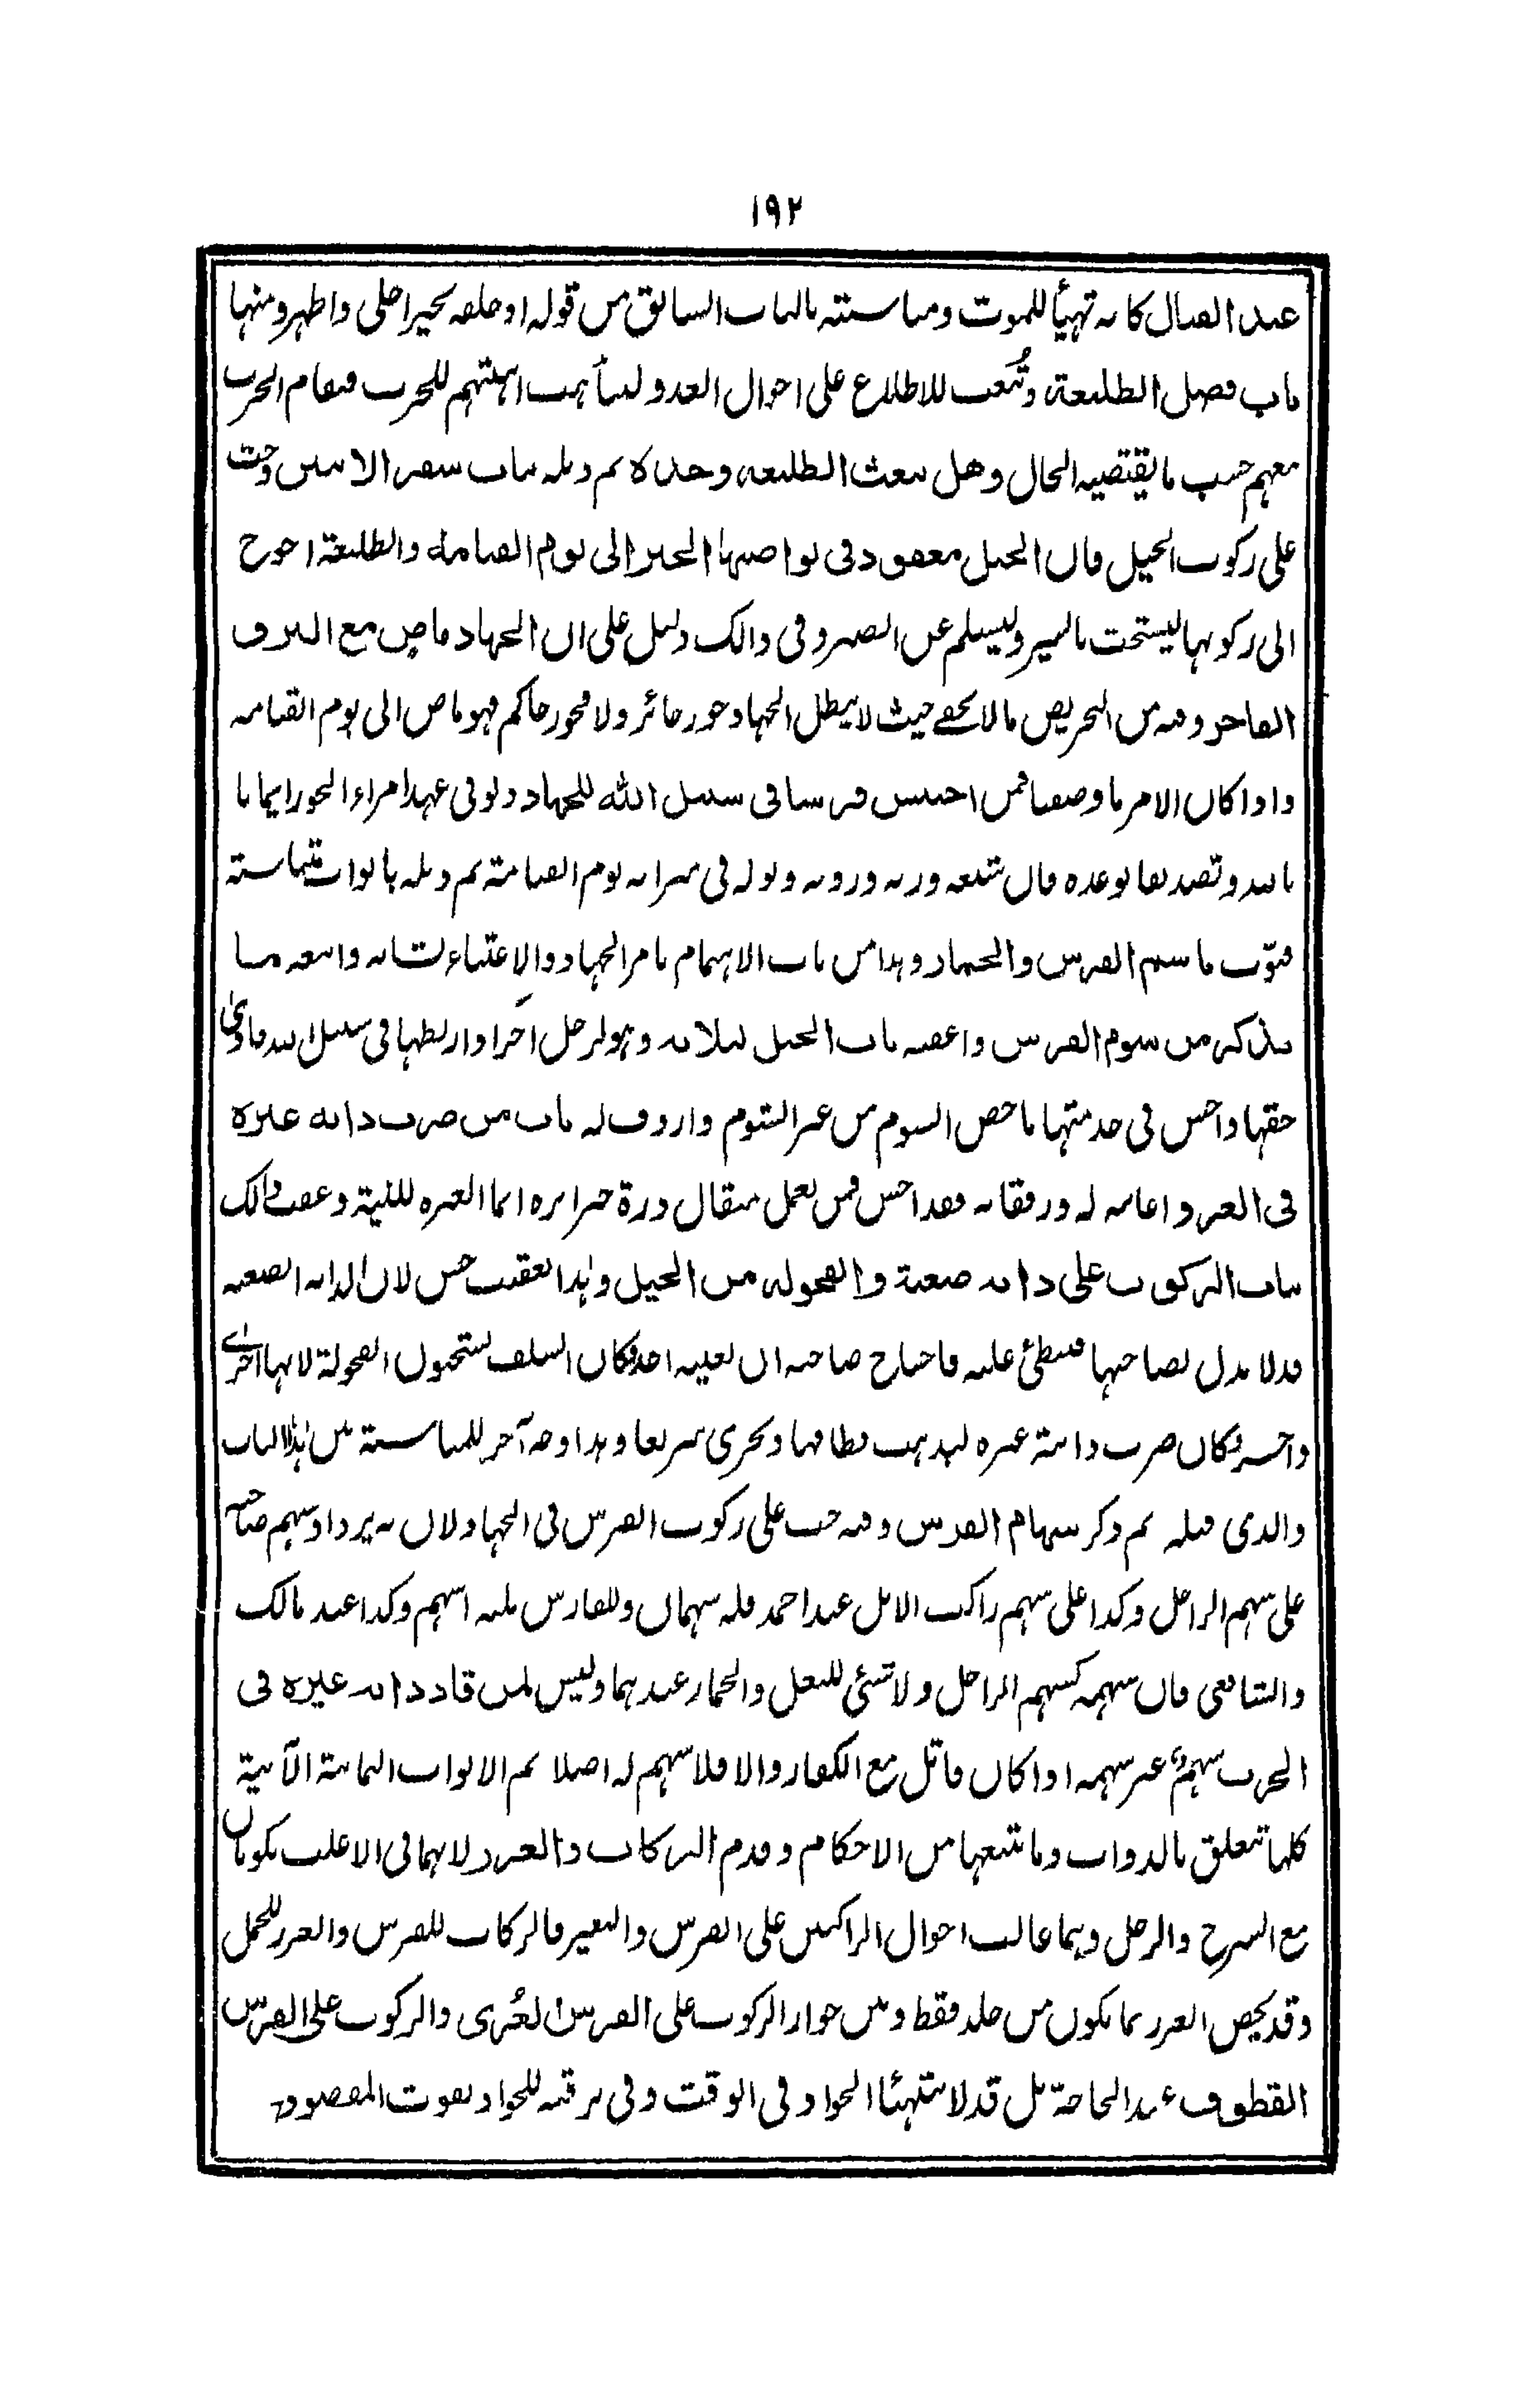 ١٩٢
عند القتال كانه تهيأ للموت ومناسبته بالباب السابق من قوله او خلعه بخير اجلى واظهر ومنها
باب فضل الطليعة وتُبعث للاطلاع على احوال العدو ليتأهب اهبتهم للحرب فيقام الحرب
معهم حسب ما يقتضيه الحال وهل يبعث الطليعة وحده ثم ذيله بباب سفر الاثنين وحث
على ركوب الخيل فان الخيل معقود فى نواصيها الخير الى يوم القيامة والطليعة احوج
الى ركوبها ليستحث بالسير وليسلم عن الضرر وفى ذالك دليل على ان الجهاد ماض مع البر و
الفاجر وفيه من التحريض ما لا يخفے حيث لا يبطل الجهاد جور جائر ولا فجور حاكم فهو ماض الى يوم القيامة
واذا كان الامر ما وصفنا فمن احتبس فرسا فى سبيل الله للجهاد ولو فى عهد امراء الجور ايمانا
بالله وتصديقا بوعده فان شبعه وريه وروثه وبوله فى ميزانه يوم القيامة ثم ذيله بابواب تناسبه
فبوّب باسم الفرس والحمار وهذا من باب الاهتمام بامر الجهاد والاعتناء بشانه واتبعه بما
يذكر من شوم الفرس واعقبه باب الخيل لثلاثة وهو لرجل اجر اذا ربطها فى سبيل الله فادى
حقها واحسن فى خدمتها ماخص الشوم من غير الشوم واردف له باب من ضرب دابة غيره
فى الغزو اعانة له ورفقا به فقد احسن فمن يعمل مثقال ذرة خيرا يره انما العبرة للنية وعقب ذالك
بباب الركوب على دابة صعبة والفحولة من الخيل وهذا التعقيب حسن لان الدابة الصعبة
قد لا تذل لصاحبها فتبطئ عليه فاحتاج صاحبه ان يعينه احد وكان السلف يستحبون الفحولة لانها اجرے
واجسر فكان ضرب دابة غيره ليذهب بطاؤها ويجرى سريعا وهذا وجه آخر للمناسبة بين هذا الباب
والذى قبله ثم ذكر سهام الفرس وفيه حث على ركوب الفرس فى الجهاد لان به يزداد سهم صاحبه
على سهم الراجل وكذا على سهم راكب الابل عند احمد فله سهمان وللفارس ثلثة اسهم وكذا عند مالك
والشافعى فان سهمه كسهم الراجل ولا شئ للبغل والحمار عندهما وليس لمن قاد دابة غيره فى
الحرب سهم غير سهمه اذا كان قاتل مع الكفار والا فلا سهم له اصلا ثم الابواب الثمانية الآتية
كلها تتعلق بالدواب وما يتبعها من الاحكام وقدم الركاب والغرز لانهما فى الاغلب يكونان
مع السرج والرحل وهما غالب احوال الراكبين على الفرس والبعير فالركاب للفرس والغرز للجمل
وقد يخص الغرز بما يكون من جلد فقط وبين جواز الركوب على الفرس العُرى والركوب على الفرس
القطوف عند الحاجة بل قد لا يتهيئا الجواد فى الوقت وفى ترقبه للجواد يفوت المقصود